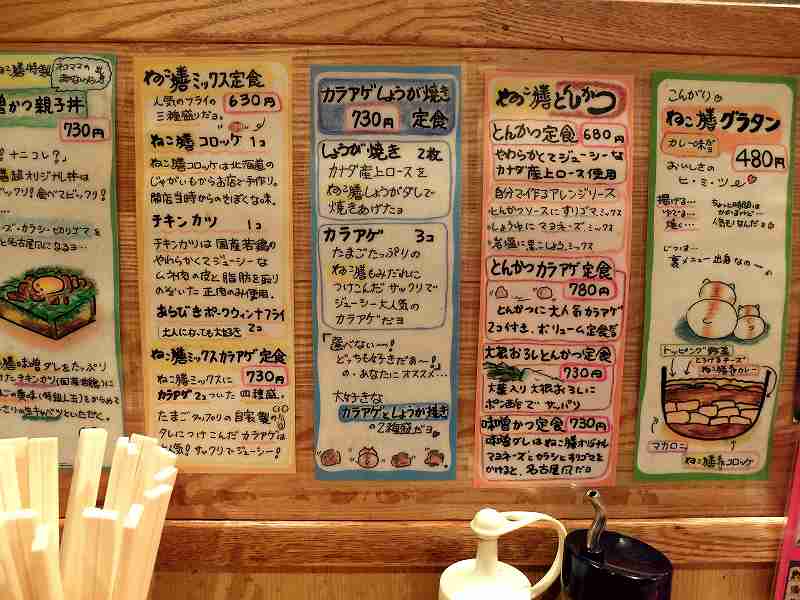 ねこ膳特製
親子丼
730円
ねこ膳ミックス定食
人気のフライの
三種盛りだヨ。
630円
ねこ膳 コロッケ 1コ
ねこ膳コロッケは北海道の
じゃがいもからお店で手作り。
開店当時からのそぼくな味。
チキンカツ 1コ
チキンカツは国産若鶏の
やわらかくてジューシーな
ムネ肉の皮と脂肪を取り
のぞいた正肉のみ使用。
あらびきポークウィンナフライ
大人になっても大好き 2コ
ねこ膳ミックスカラアゲ定食
ねこ膳ミックスに 730円
カラアゲ2コついた四種盛。
たまごタップリの自家製の
タレにつけこんだカラアゲは
人気!サックリでジューシー!
カラアゲしょうが焼き
730円 定食
しょうが焼き 2枚
カナダ産上ロースを
ねこ膳しょうがダレで
焼きあげたヨ
カラアゲ 3コ
たまごたっぷりの
ねこ膳もみだれに
つけこんだ サックリで
ジューシー大人気の
カラアゲだヨ
「選べない〜!
どっちも好きだぁ〜!」
の、あなたにオススメ…
大好きな
カラアゲとしょうが焼き
の2種盛だヨ
ねこ膳とんかつ
とんかつ定食 680円
やわらかくてジューシーな
カナダ産上ロース使用
自分で作るアレンジソース
とんかつソースにすりゴマミックス
しょうゆにマヨネーズミックス
岩塩に黒こしょうミックス
とんかつカラアゲ定食
780円
とんかつに大人気カラアゲ
2コ付き、ボリューム定食
大根おろしとんかつ定食
730円
大葉入り大根おろしに
ポン酢で サッパリ
味噌かつ定食 730円
味噌ダレはねこ膳オリジナル
マヨネーズとカラシとキリゴマを
かけると、名古屋風だヨ
こんがり
ねこ膳グラタン
カレー味だヨ
480円
おいしさの
ヒ・ミ・ツ
揚げる…
ゆでる…
焼く…
ちょっと時間は
かかるけど…
人気モノなんだヨ
じつは…
裏メニュー出身なの〜
トッピング野菜
とろけるチーズ
ねこ膳カレー
マカロニ
ねこ膳コロッケ